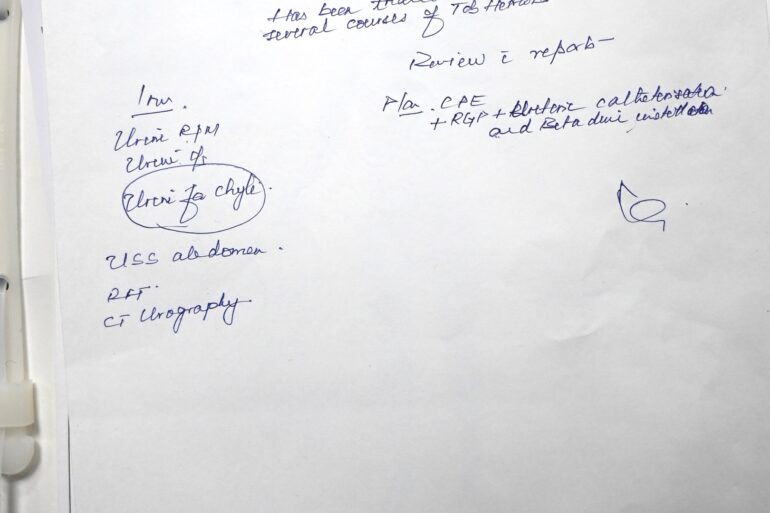 Has been
several courses of Tab Hetrazan
Review c̄ reports
Inv.
Urine R/M
Urine c/s
Urine for chyle.
USS abdomen.
RFT.
CT Urography
Plan. CPE
+ RGP + Ureteric catheterisation
and Betadine instillation